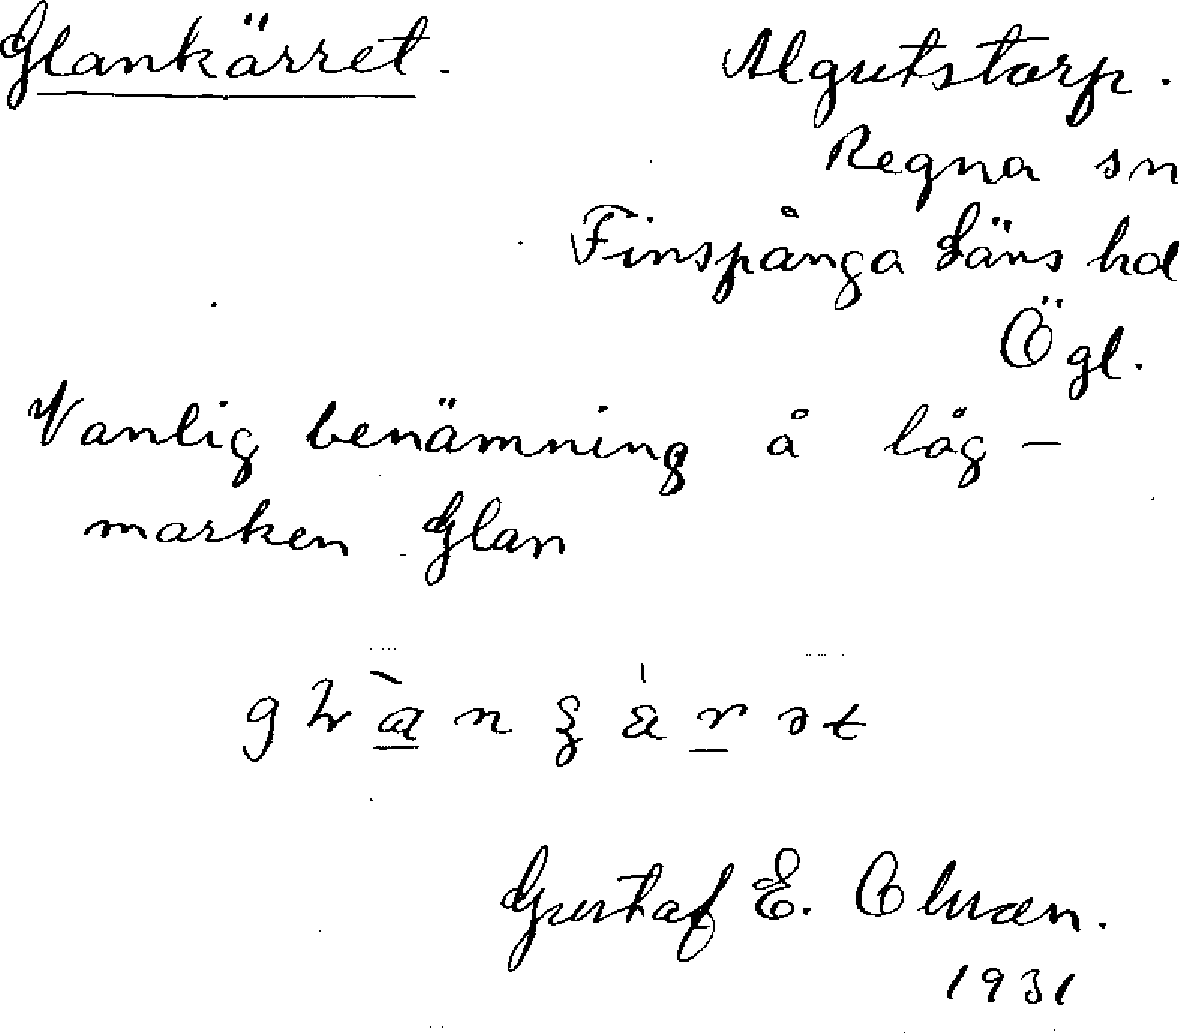 Glankärret.
Algutstorp.
Regna sn
Finspånga läns hd
Ögl.
Vanlig benämning å låg-
marken Glan
Gustaf E.
1931